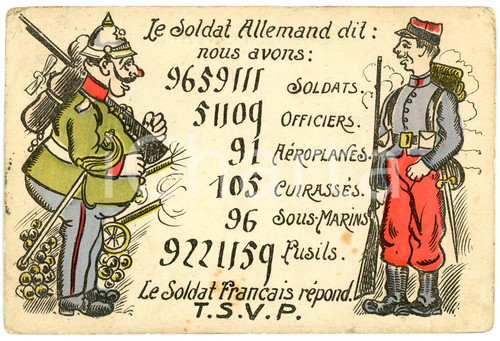 Le Soldat Allemand dit:
nous avons:
9659111 SOLDATS.
51109 OFFICIERS.
91 AÉROPLANES.
105 CUIRASSÉS.
96 SOUS-MARINS
9221159 Fusils.
Le Soldat français répond.
T.S.V.P.